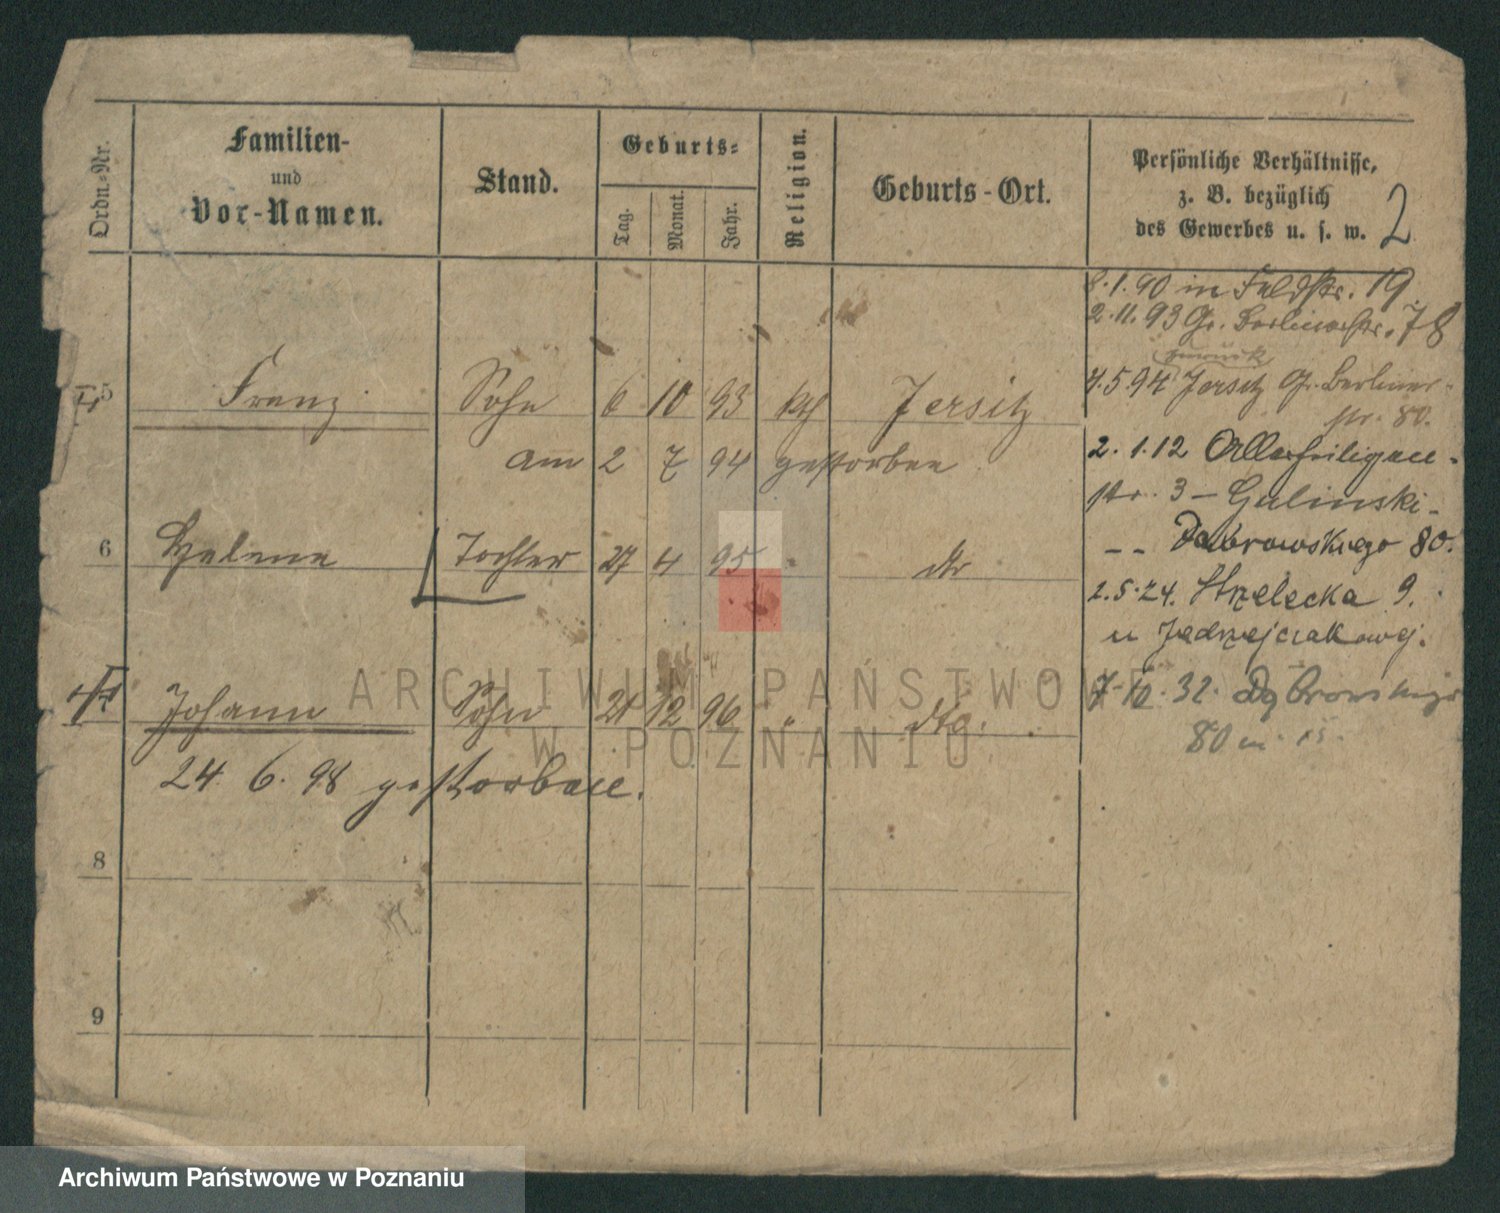 Ordn.-Nr.
Familien-
und
Vor-Namen.
Stand.
Geburts-
Tag.
Monat.
Jahr.
Religion.
Geburts-Ort.
Persönliche Verhältnisse,
z. B. bezüglich
des Gewerbes u. s. w.
2
2.1.90 in Feldstr. 19.
2.11.93 Gr. Berlinerstr. 78
zurück
4.5.94 Jersitz Gr. Berliner-
str. 80.
5 Franz Sohn 6 10 93 kth Jersitz
am 2 7 94 gestorben
2.1.12 Allerheiligen-
str. 3 — Galinski-
-- Dabrowskiego 80.
6 Helene Tochter 27 4 95 " dto
2.5.24. Strzelecka 9.
u Jedrzejczakowej.
7 Johann Sohn 21 12 96 " dto.
7-10.32. Dąbrowskiego
80 m. 15.
24. 6. 98 gestorben.
8
9
ARCHIWUM PAŃSTWOWE
W POZNANIU
Archiwum Państwowe w Poznaniu